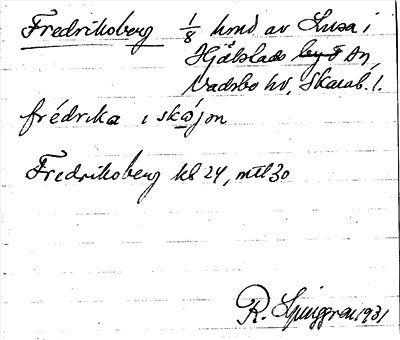 Fredriksberg 1/8 hmd av Lusa i
Hjälstads by o sn,
Vadsbo hd, Skarab. l.
frédrika i skåjon
Fredriksberg kl 24, mtl 30
R. Ljunggren 1931